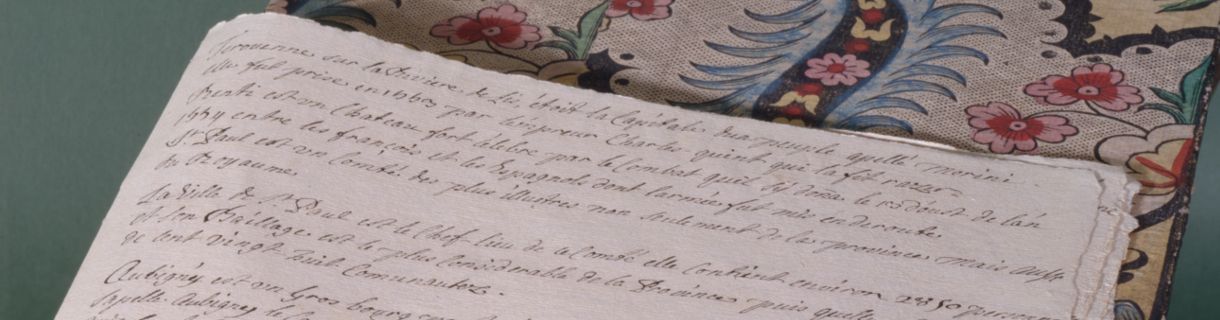 Terouenne sur la Riviere de Lis, étoit la Capitale des peuple apellé morini
elle fut prise en 1553 par L'Empreur Charles quint qui la fit razer
Renti est un Chateau fort célebre par le Combat quil s'y dõna le 13 d'Aoust de l'an
1554 entre les françois et les Espagnols dont l'armée fut mis en deroute
St. Paul est un Comté des plus illustres non seulement de la province mais aussi
du Royaume
La Ville de St. Paul est le Chef-lieu de ce Comté elle Contient environ personnes
et son Bailliage est le plus Considerable de la Province puis quelle
de Cent vingt huit Comunautez.
Aubigny est un Gros bourg
apellé Aubigny le